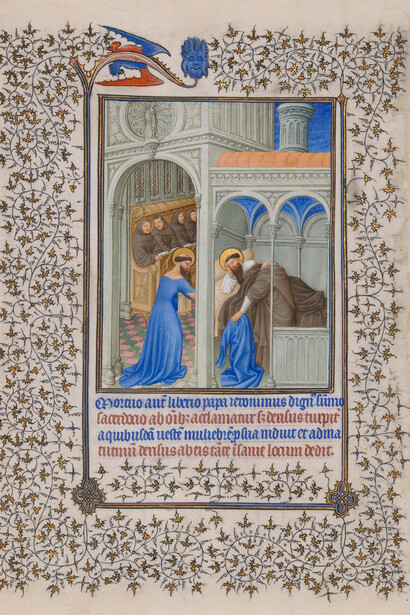 Mortuo aūt liberio papa ieronimus dign⁹ sūmo
sacerdocio ab oībꝫ acclamatur sꝫ derisus turpit̄
a quibusdā veste muliebri īpsūa induit et ad ma
tutinū derisus ab eis tāte īsanie locum dedit.